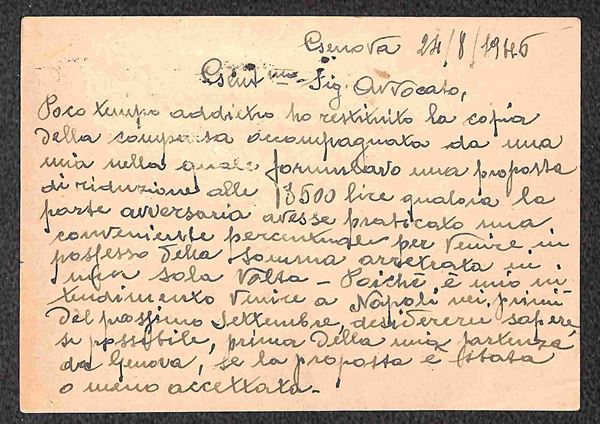 Genova 24/8/1946
Gent.mo Sig. Avvocato,
Poco tempo addietro ho restituito la copia
della comparsa accompagnata da una
mia nella quale formulavo una proposta
di riduzione alle 3500 lire qualora la
parte avversaria avesse praticato una
conveniente percentuale per venire in
possesso della somma arretrata in
una sola volta - Poichè è mio in
tendimento venire a Napoli nei primi
del prossimo Settembre, desidererei sapere,
se possibile, prima della mia partenza
da Genova, se la proposta è stata
o meno accettata -